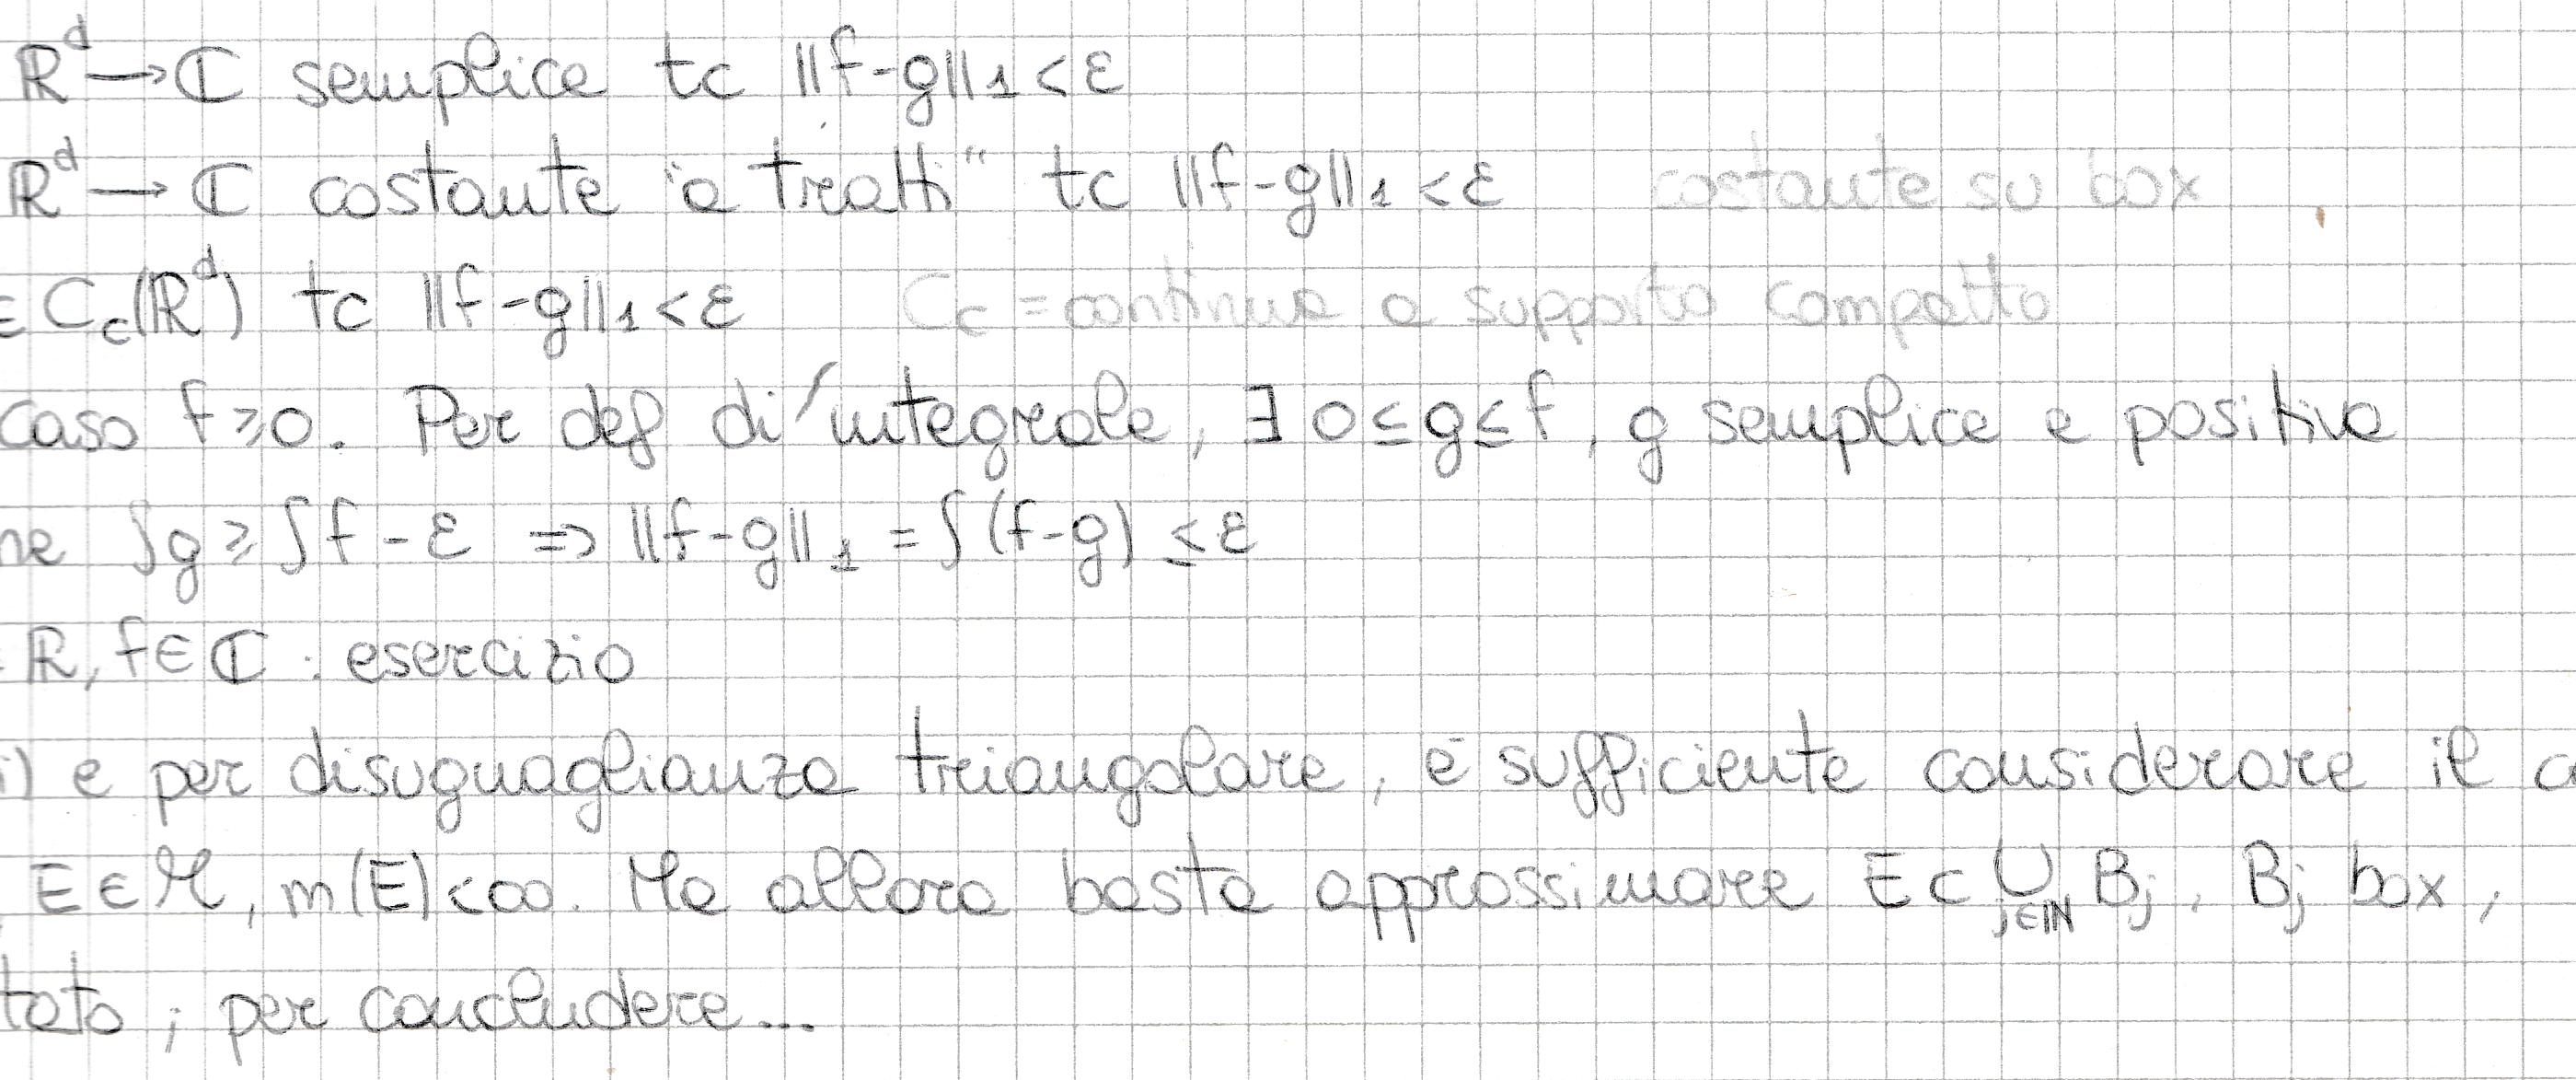 ℝᵈ → ℂ semplice tc ||f-g||₁ < ε
ℝᵈ → ℂ costante "a tratti" tc ||f-g||₁ < ε costante su box
∈ C_c(ℝᵈ) tc ||f-g||₁ < ε C_c = continua a supporto compatto
caso f ≥ 0. Per def di integrale, ∃ 0 ≤ g ≤ f, g semplice e positiva
ne ∫g ≥ ∫f - ε ⇒ ||f-g||₁ = ∫(f-g) ≤ ε
ℝ, f ∈ ℂ : esercizio
i) e per disuguaglianza triangolare, è sufficiente considerare il
E ∈ ℳ, m(E) < ∞. Ma allora basta approssimare E ⊂ ⋃_{j∈ℕ} B_j, B_j box,
tato ; per concludere...